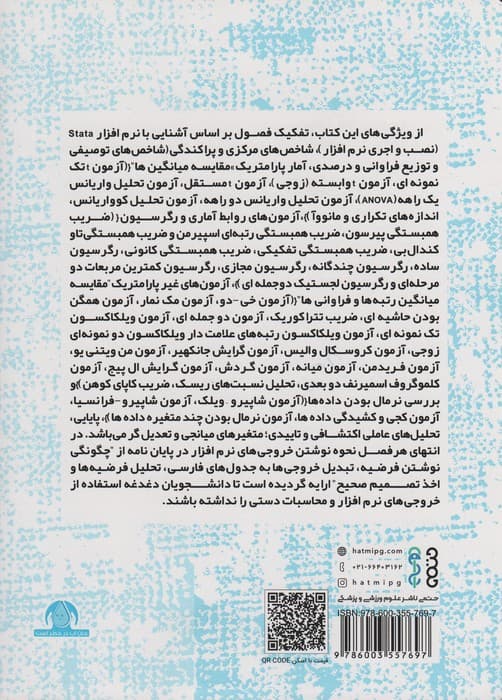 از ویژگی‌های این کتاب، تفکیک فصول بر اساس آشنایی با نرم افزار Stata
(نصب و اجری نرم افزار)، شاخص‌های مرکزی و پراکندگی(شاخص‌های توصیفی
و توزیع فراوانی و درصدی، آمار پارامتریک»مقایسه میانگین ها"{(آزمون t تک
نمونه ای، آزمون t وابسته (زوجی)، آزمون t مستقل، آزمون تحلیل واریانس
یک راهه(ANOVA)، آزمون تحلیل واریانس دو راهه، آزمون تحلیل کوواریانس،
اندازه‌های تکراری و مانووا)}، آزمون‌های روابط آماری و رگرسیون{(ضریب
همبستگی پیرسون، ضریب همبستگی رتبه‌ای اسپیرمن و ضریب همبستگی تاو
کندال بی، ضریب همبستگی تفکیکی، ضریب همبستگی کانونی، رگرسیون
ساده، رگرسیون چندگانه، رگرسیون مجازی، رگرسیون کمترین مربعات دو
مرحله‌ای و رگرسیون لجستیک دوجمله ای)}، آزمون‌های غیر پارامتریک"مقایسه
میانگین رتبه‌ها و فراوانی ها"{(آزمون خی-دو، آزمون مک نمار، آزمون همگن
بودن حاشیه ای، ضریب تتراکوریک، آزمون دو جمله ای، آزمون ویلکاکسون
تک نمونه ای، آزمون ویلکاکسون رتبه‌های علامت دار ویلکاکسون دو نمونه‌ای
زوجی، آزمون کروسکال والیس، آزمون گرایش جانکهیر، آزمون من ویتنی یو،
آزمون فریدمن، آزمون میانه، آزمون گردش، آزمون گرایش ال پیج، آزمون
کلموگروف اسمیرنف دو بعدی، تحلیل نسبت‌های ریسک، ضریب کاپای کوهن)}و
بررسی نرمال بودن داده‌ها{(آزمون شاپیرو-ویلک، آزمون شاپیرو-فرانسیا،
آزمون کجی و کشیدگی داده ها، آزمون نرمال بودن چند متغیره داده ها)}، پایایی،
تحلیل‌های عاملی اکتشافی و تاییدی؛ متغیرهای میانجی و تعدیل گر می‌باشد. در
انتهای هر فصل نحوه نوشتن خروجی‌های نرم افزار در پایان نامه از "چگونگی
نوشتن فرضیه، تبدیل خروجی‌ها به جدول‌های فارسی، تحلیل فرضیه‌ها و
اخذ تصمیم صحیح" ارایه گردیده است تا دانشجویان دغدغه استفاده از
خروجی‌های نرم افزار و محاسبات دستی را نداشته باشند.
hatmipg.com
۰۲۱-۶۶۴۰۳۱۶۲
hatmipg
حتمی ناشر علوم ورزشی و پزشکی
ISBN:978-600-355-769-7
9 786003 557697
قیمت با اسکن QR CODE
جان آب در خطر است